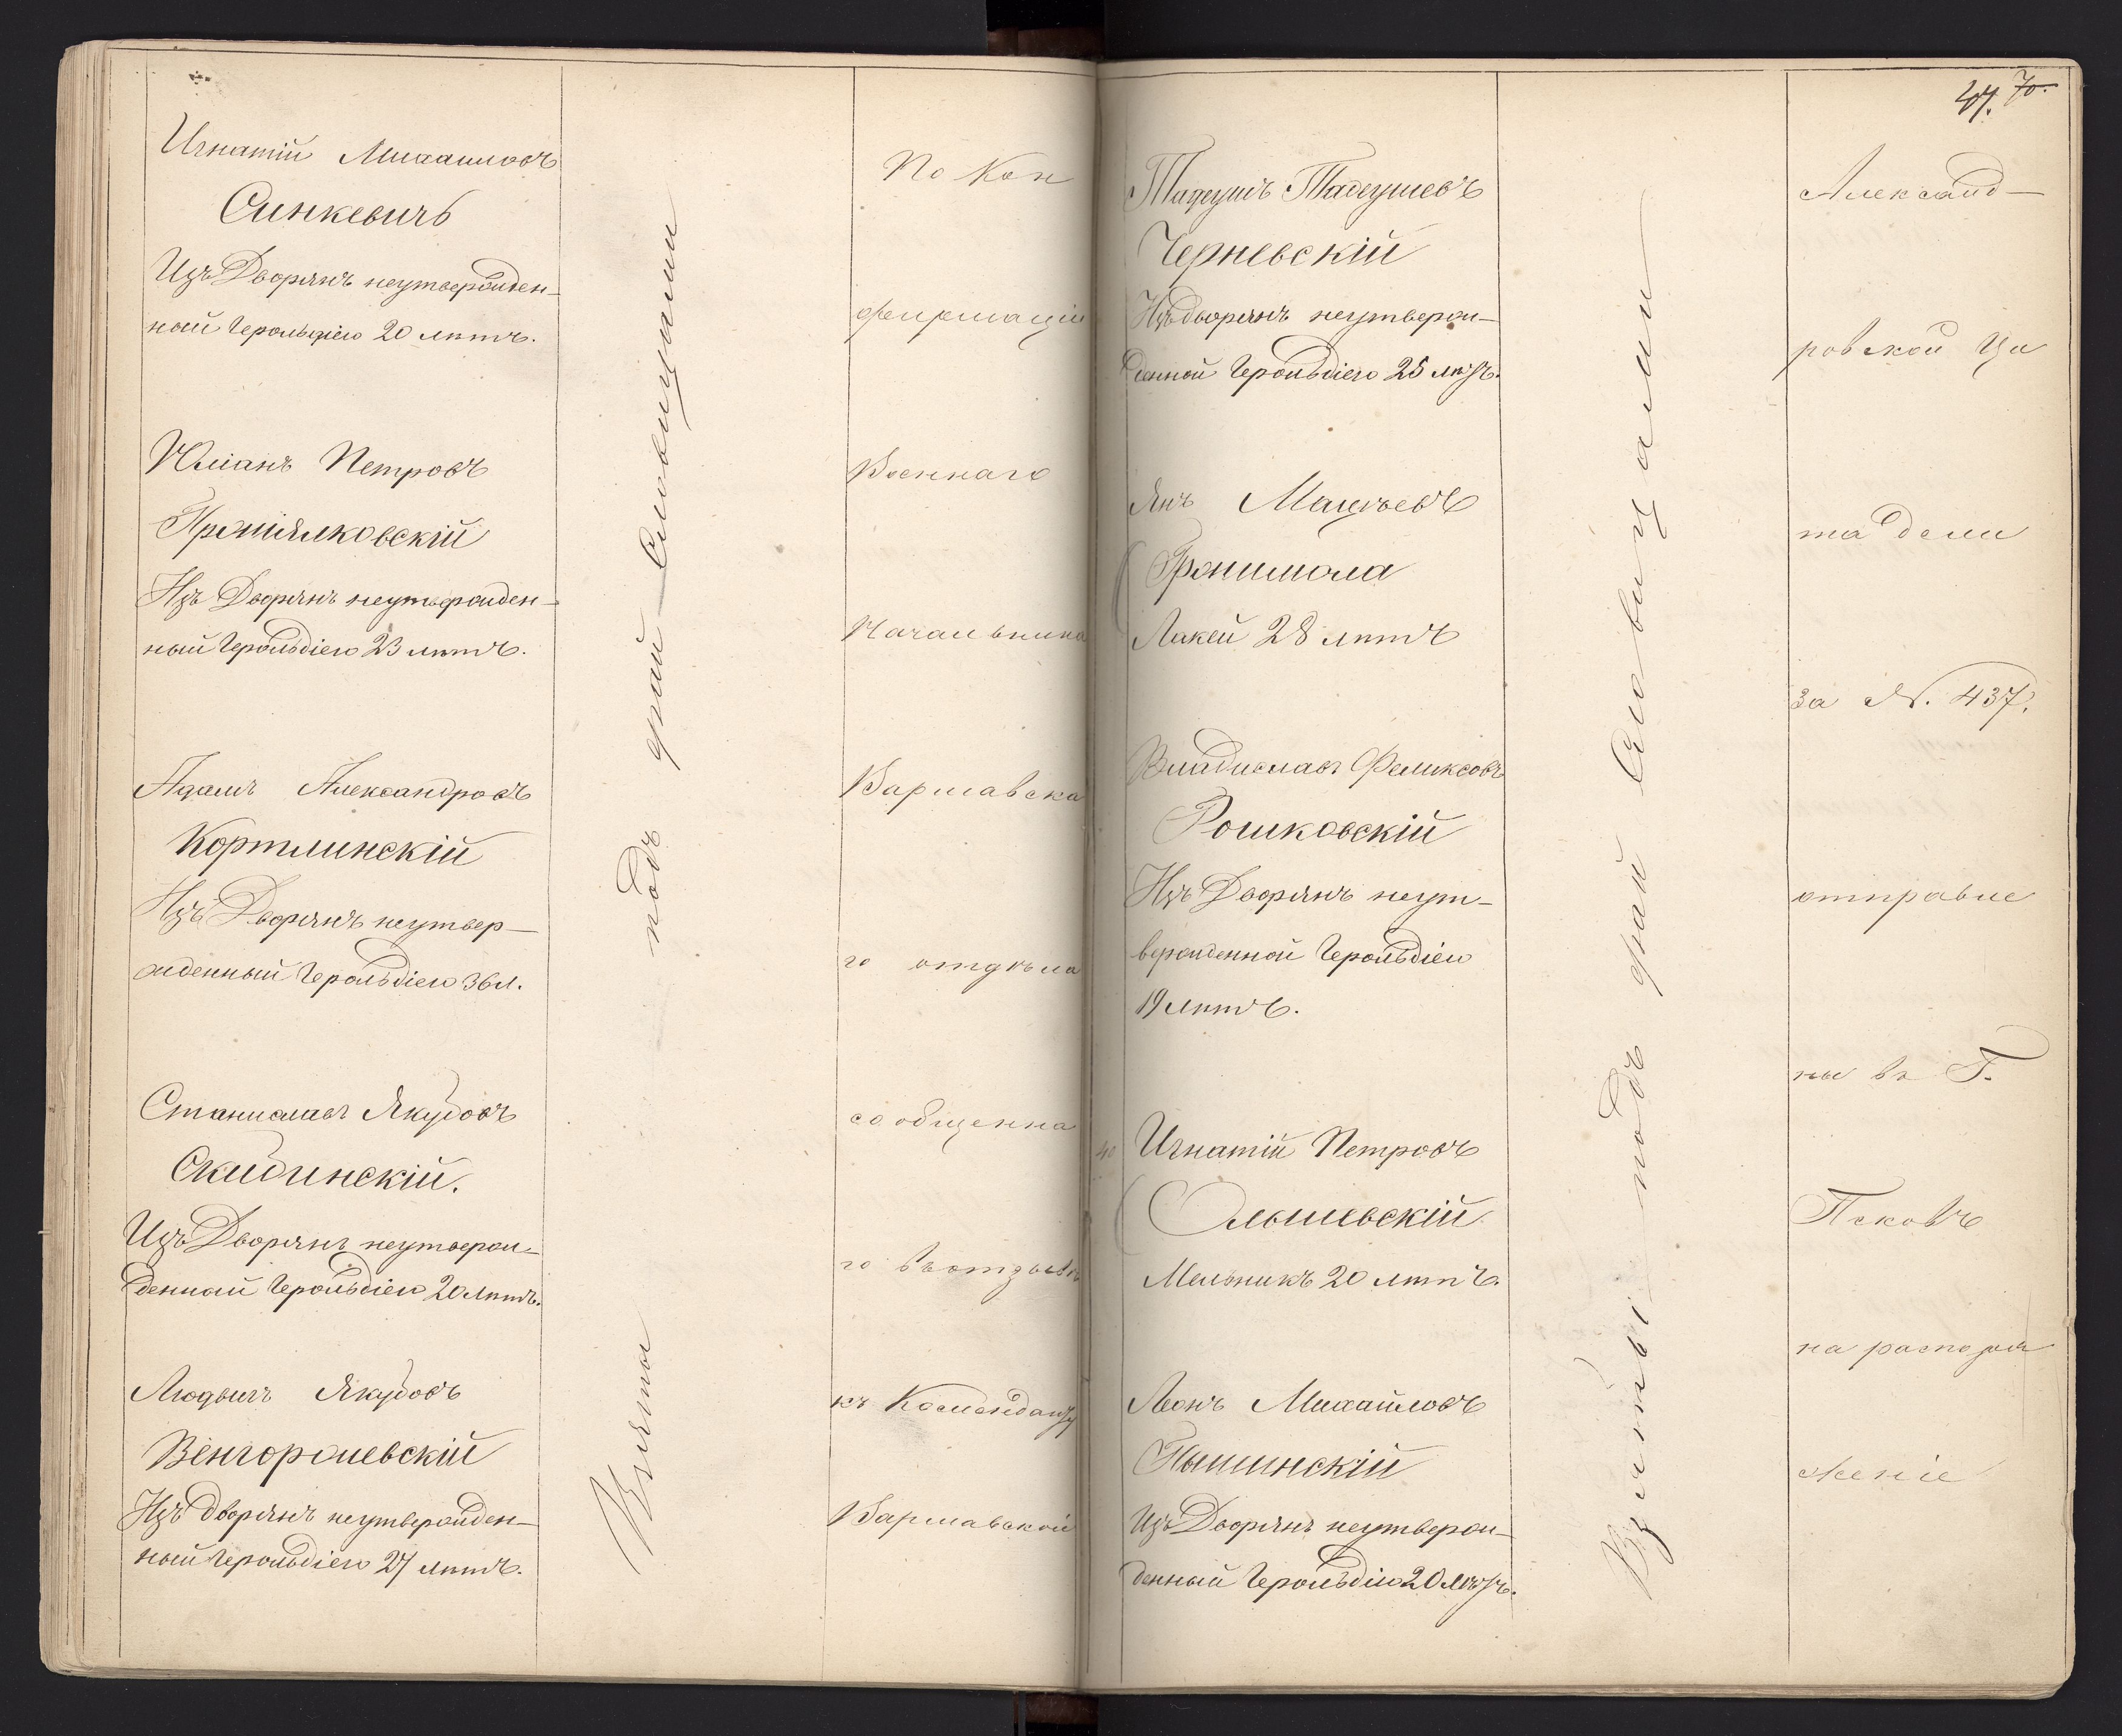 Игнатій Михайловъ
Синкевичъ
Изъ Дворянъ неутвержден-
ный Герольдіею 20 лѣтъ.
Юліанъ Петровъ
Изъ Дворянъ неутвержден-
ный Герольдіею 23 лѣтъ.
Адамъ Александровъ
Кортлинскій
Изъ Дворянъ неутвер-
жденный Герольдіею 36 л.
Станиславъ Якубовъ
Скибинскій.
Изъ Дворянъ неутверж-
денный Герольдіею 20 лѣтъ.
Людвигъ Якубовъ
Венгоржевскій
Изъ дворянъ неутвержден-
ный Герольдіею 27 лѣтъ.
Взяты подъ Словицами
По Кон
фирмаціи
Военнаго
Начальника
Варшавска
го отдѣла
сообщенна
го въ отзывѣ
къ Коменданту
Варшавской
47. 70.
Тадеушъ Тадеушевъ
Черневскій
Изъ дворянъ неутверж-
денной Герольдіею 25 лѣтъ.
Янъ Мацѣевъ
Лакей 28 лѣтъ
Владиславъ Феликсовъ
Рошковскій
Изъ Дворянъ неут-
вержденной Герольдіею
19 лѣтъ.
40
Игнатій Петровъ
Ольшевскій
Мельникъ 20 лѣтъ.
Леонъ Михайловъ
Изъ Дворянъ неутверж-
денный Герольдіею 20 лѣтъ.
Взяты подъ Словицами
Александ-
ровской Ци
тадели
за №. 437.
отправле
ны въ Г.
Псковъ
на располо
женіе